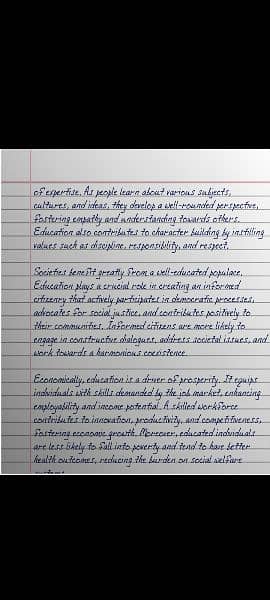 of expertise. As people learn about various subjects,
cultures, and ideas, they develop a well-rounded perspective,
fostering empathy and understanding towards others.
Education also contributes to character building by instilling
values such as discipline, responsibility, and respect.
Societies benefit greatly from a well-educated populace.
Education plays a crucial role in creating an informed
citizenry that actively participates in democratic processes,
advocates for social justice, and contributes positively to
their communities. Informed citizens are more likely to
engage in constructive dialogues, address societal issues, and
work towards a harmonious coexistence.
Economically, education is a driver of prosperity. It equips
individuals with skills demanded by the job market, enhancing
employability and income potential. A skilled workforce
contributes to innovation, productivity, and competitiveness,
fostering economic growth. Moreover, educated individuals
are less likely to fall into poverty and tend to have better
health outcomes, reducing the burden on social welfare